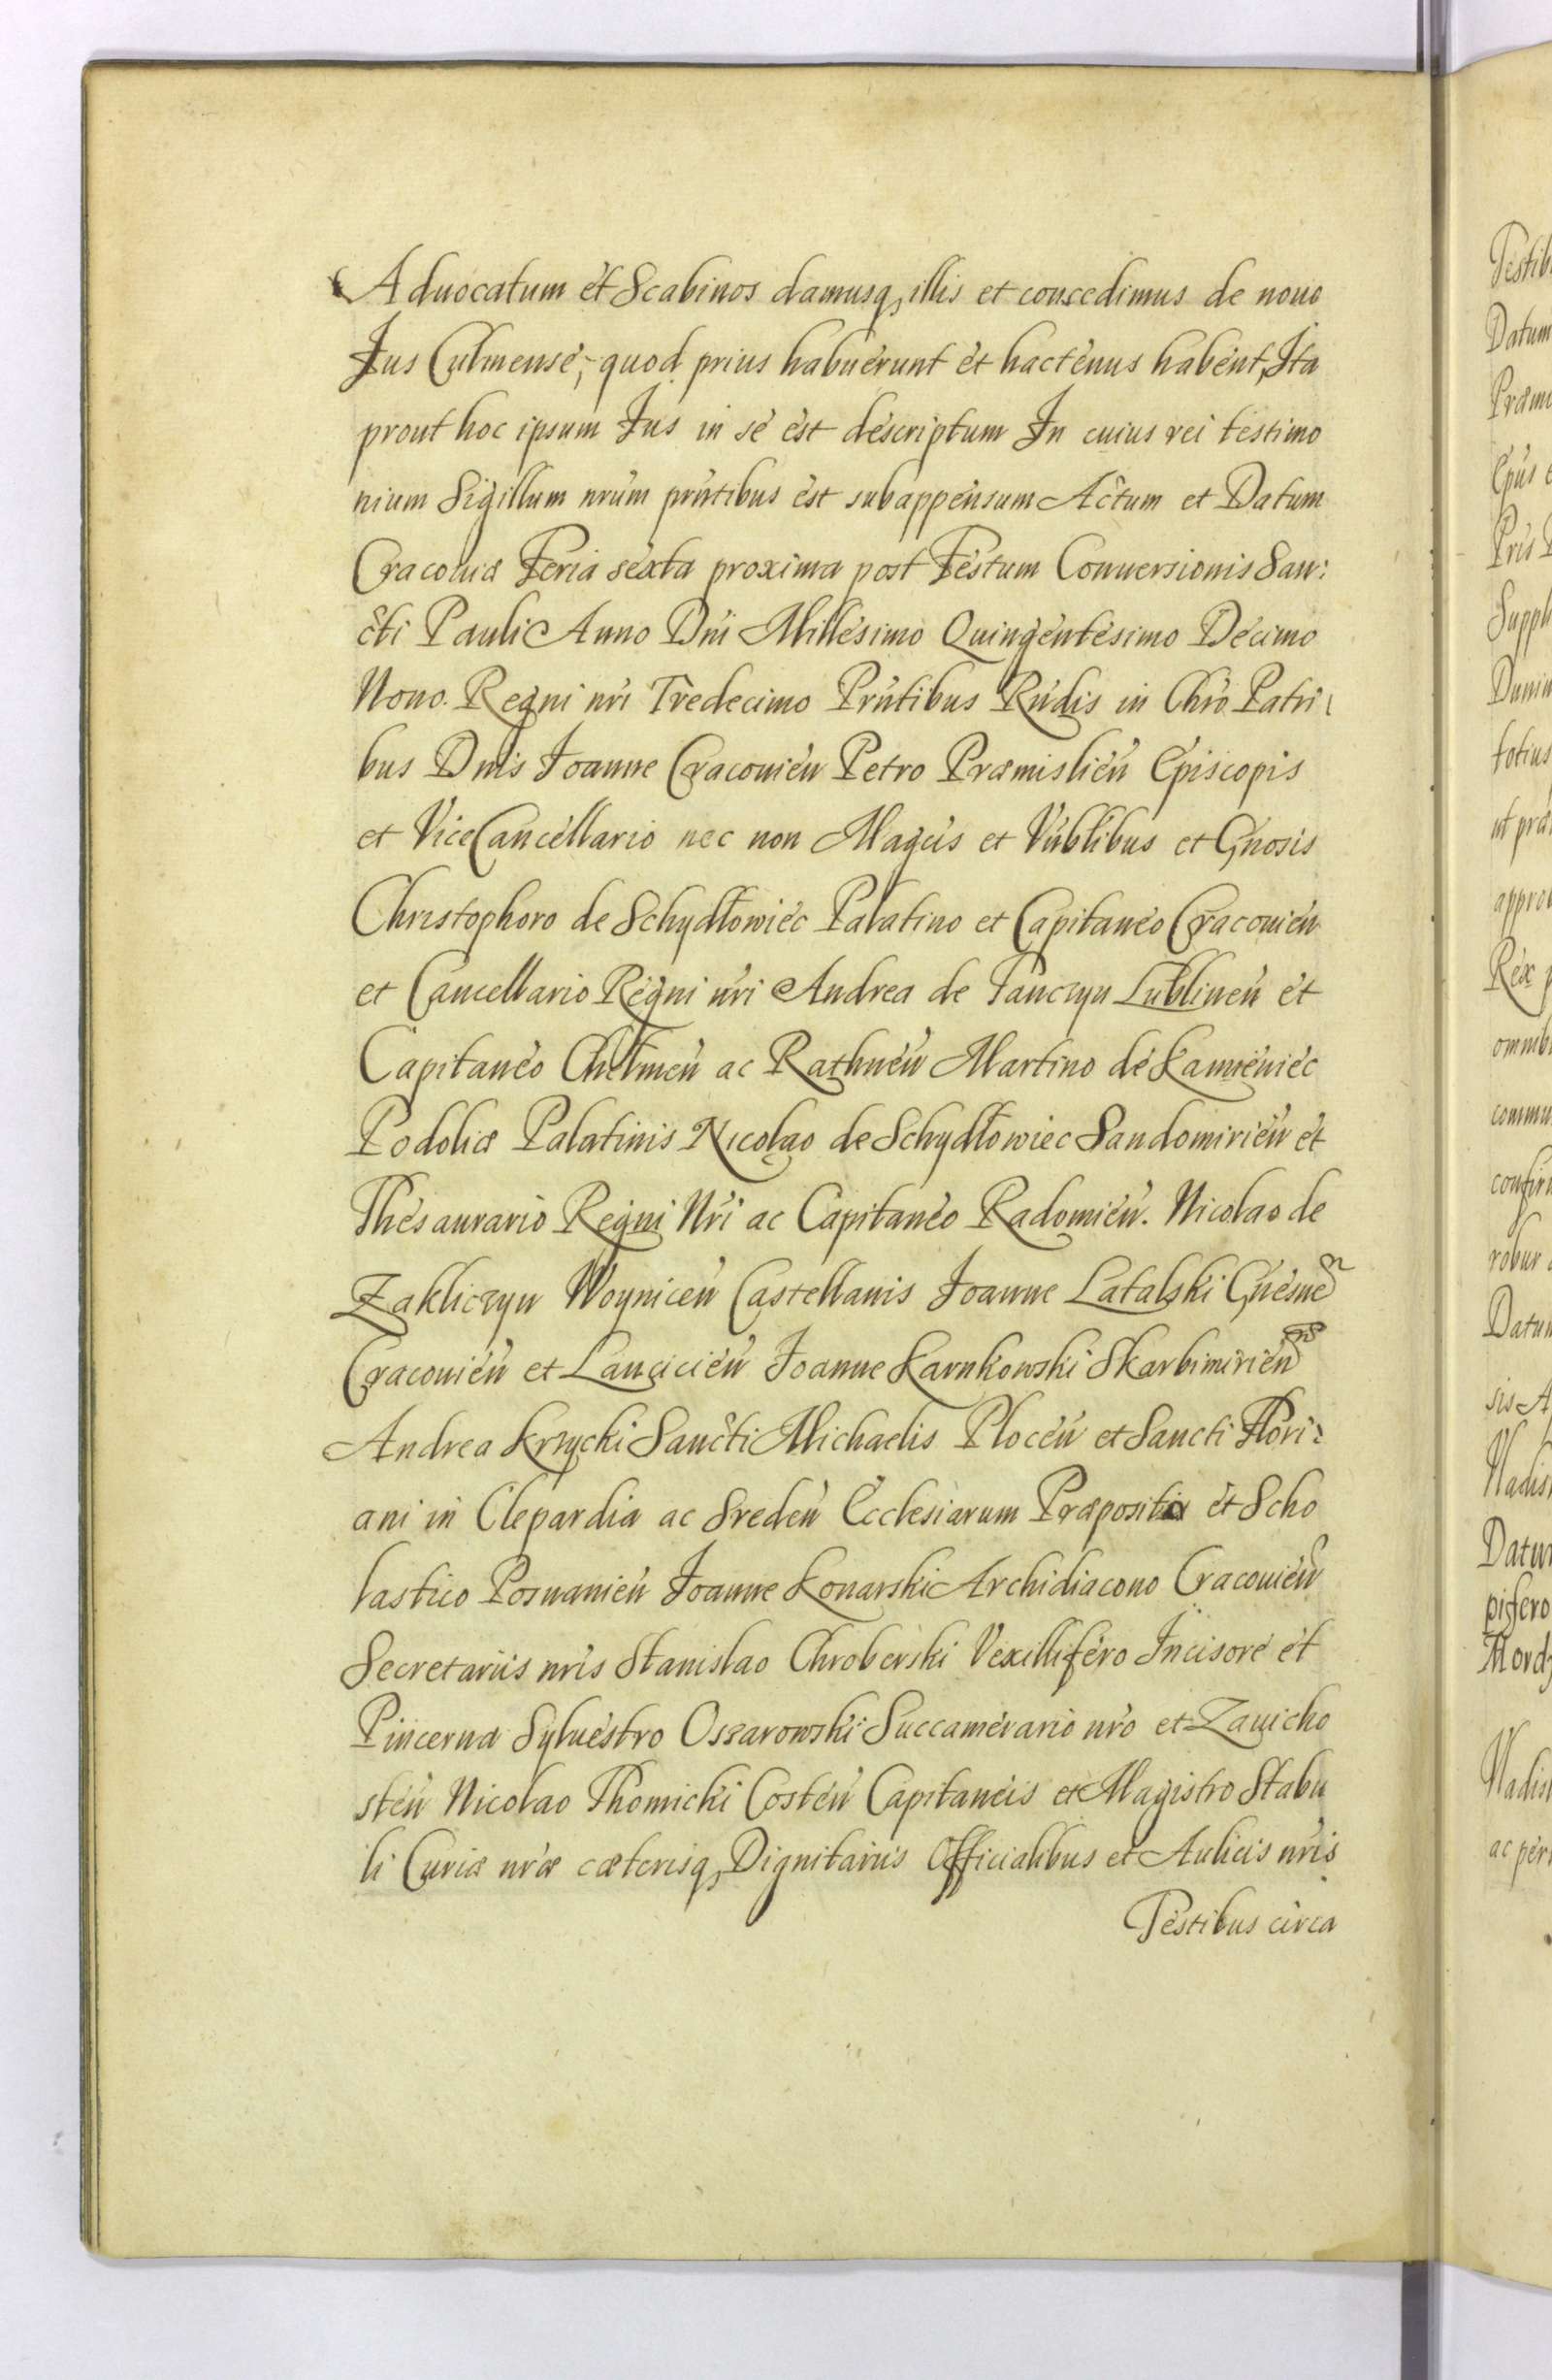 Aduocatum et Scabinos damusq, illis et concedimus de nouo
Jus Culmense, quod prius habuerunt et hactenus habent, Ita
prout hoc ipsum Jus in se est descriptum In cuius rei testimo
nium Sigillum nrūm prn̄tibus est subappensum Actum et Datum
Cracouiæ Feria sexta proxima post Festum Conuersionis San:
cti Pauli Anno Dn̄i Millesimo Quingentesimo Decimo
Nono. Regni nr̄i Tredecimo Prn̄tibus Rn̄dis in Chr̄o Patri
bus Dn̄is Joanne Cracouien̄ Petro Præmislien̄ Episcopis
et ViceCancellario nec non Magcis et Vn̄blibus et Gn̄osis
Christophoro de Schydłowiec Palatino et Capitaneo Cracouien̄
et Cancellario Regni nr̄i Andrea de Tanczyn Lublinen̄ et
Capitaneo Chełmen̄ ac Rathnen̄ Martino de Kamieniec
Podoliæ Palatinis Nicolao de Schydłowiec Sandomirien̄ et
Thesaurario Regni Nr̄i ac Capitaneo Radomien̄. Nicolao de
Zakliczyn Woynicen̄ Castellanis Joanne Latalski Gnesnen
Cracouien̄ et Lancicien̄ Joanne Karnkowski Skarbimirien̄
Andrea Krzycki Sancti Michaelis Plocen̄ et Sancti Flori:
ani in Clepardia ac Sreden̄ Ecclesiarum Præpositis et Scho
lastico Posnanien̄ Joanne Konarski Archidiacono Cracouien̄
Secretariis nr̄is Stanislao Chroberski Vexillifero Incisore et
Pincerna Syluestro Ossarowski Succamerario nr̄o et Zauicho
sten̄ Nicolao Thomicki Costen̄ Capitaneis et Magistro Stabu
li Curiæ nr̄æ cæterisq, Dignitariis Officialibus et Aulicis nr̄is
Testibus circa